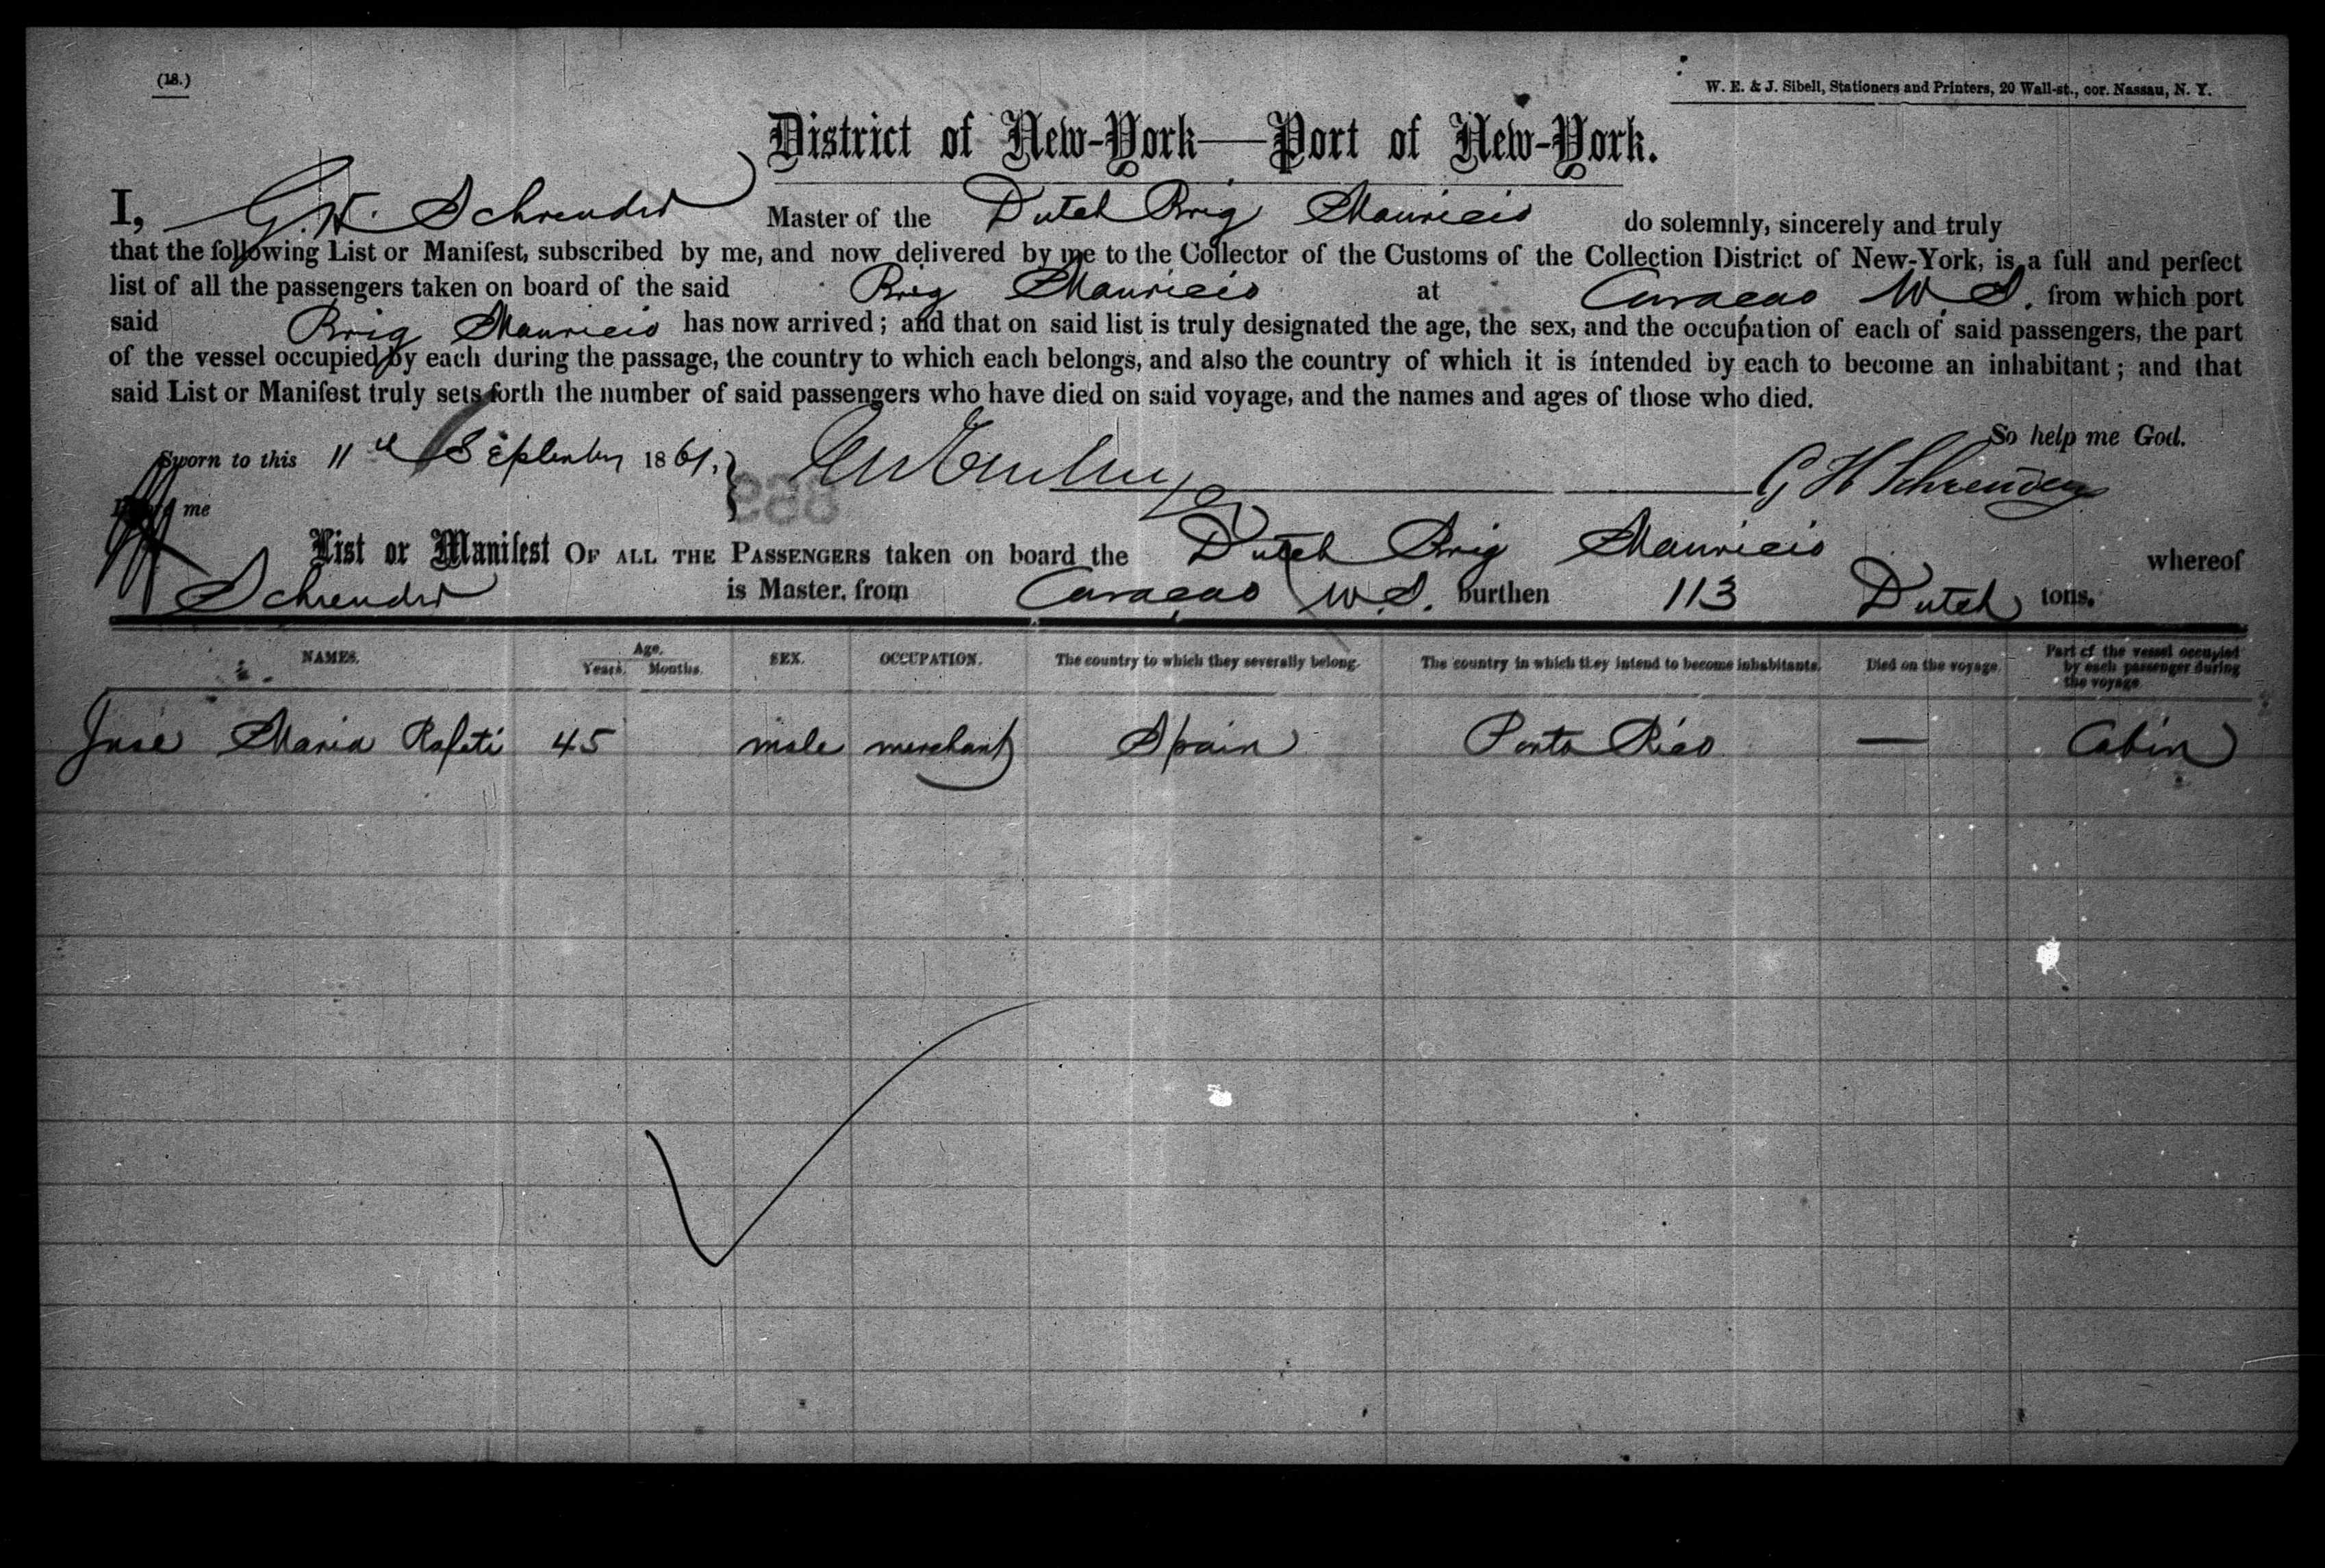 (18.)
W. E. & J. Sibell, Stationers and Printers, 20 Wall-st., cor. Nassau, N. Y.
District of New-York—Port of New-York.
I, G. H. Schreuder Master of the Dutch Brig Mauricio do solemnly, sincerely and truly
that the following List or Manifest, subscribed by me, and now delivered by me to the Collector of the Customs of the Collection District of New-York, is a full and perfect
list of all the passengers taken on board of the said Brig Mauricio at Curacao W. I. from which port
said Brig Mauricio has now arrived; and that on said list is truly designated the age, the sex, and the occupation of each of said passengers, the part
of the vessel occupied by each during the passage, the country to which each belongs, and also the country of which it is intended by each to become an inhabitant; and that
said List or Manifest truly sets forth the number of said passengers who have died on said voyage, and the names and ages of those who died.
So help me God.
Sworn to this 11th September 1861,
G H Schreuder
Before me
List or Manifest OF ALL THE PASSENGERS taken on board the Dutch Brig Mauricio whereof
Schreuder is Master, from Curaçao W. I. burthen 113 Dutch tons.
NAMES. Age. Years. Months. SEX. OCCUPATION. The country to which they severally belong. The country in which they intend to become inhabitants. Died on the voyage. Part of the vessel occupied by each passenger during the voyage
Jose Maria Rafeti 45 male merchant Spain Porto Rico — Cabin